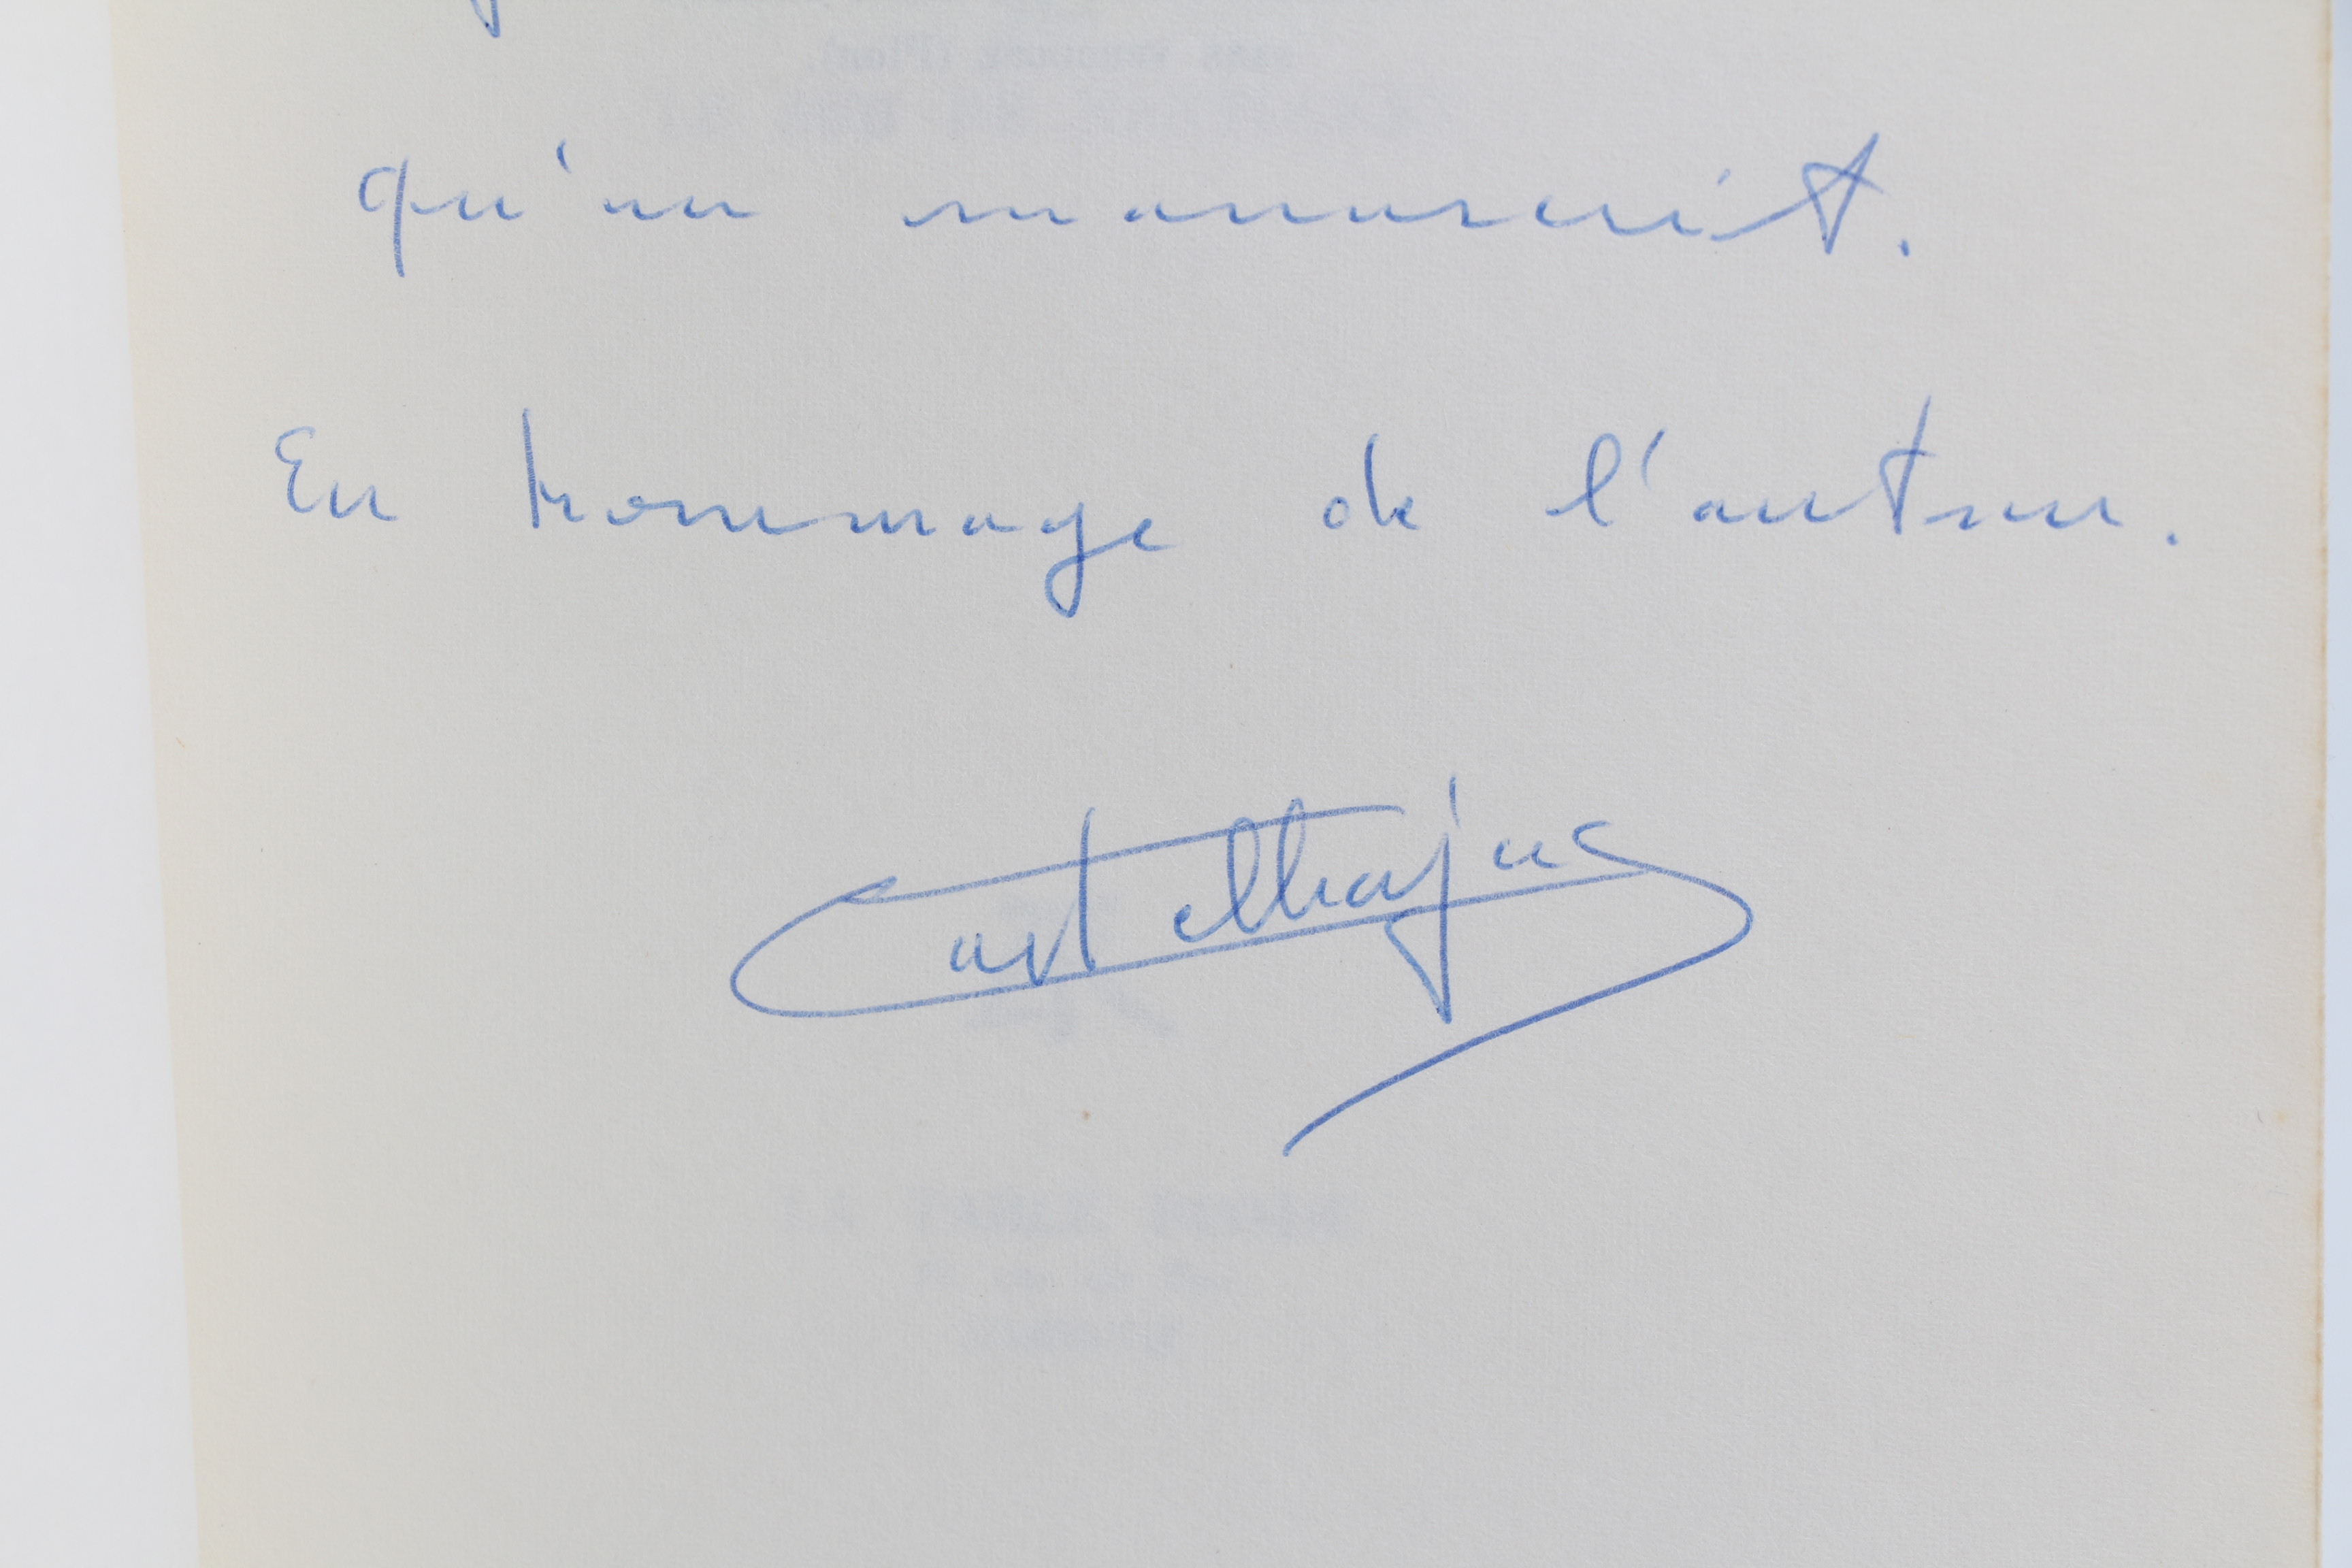 qu'un manuscrit.
En hommage de l'auteur.
Castelbajac